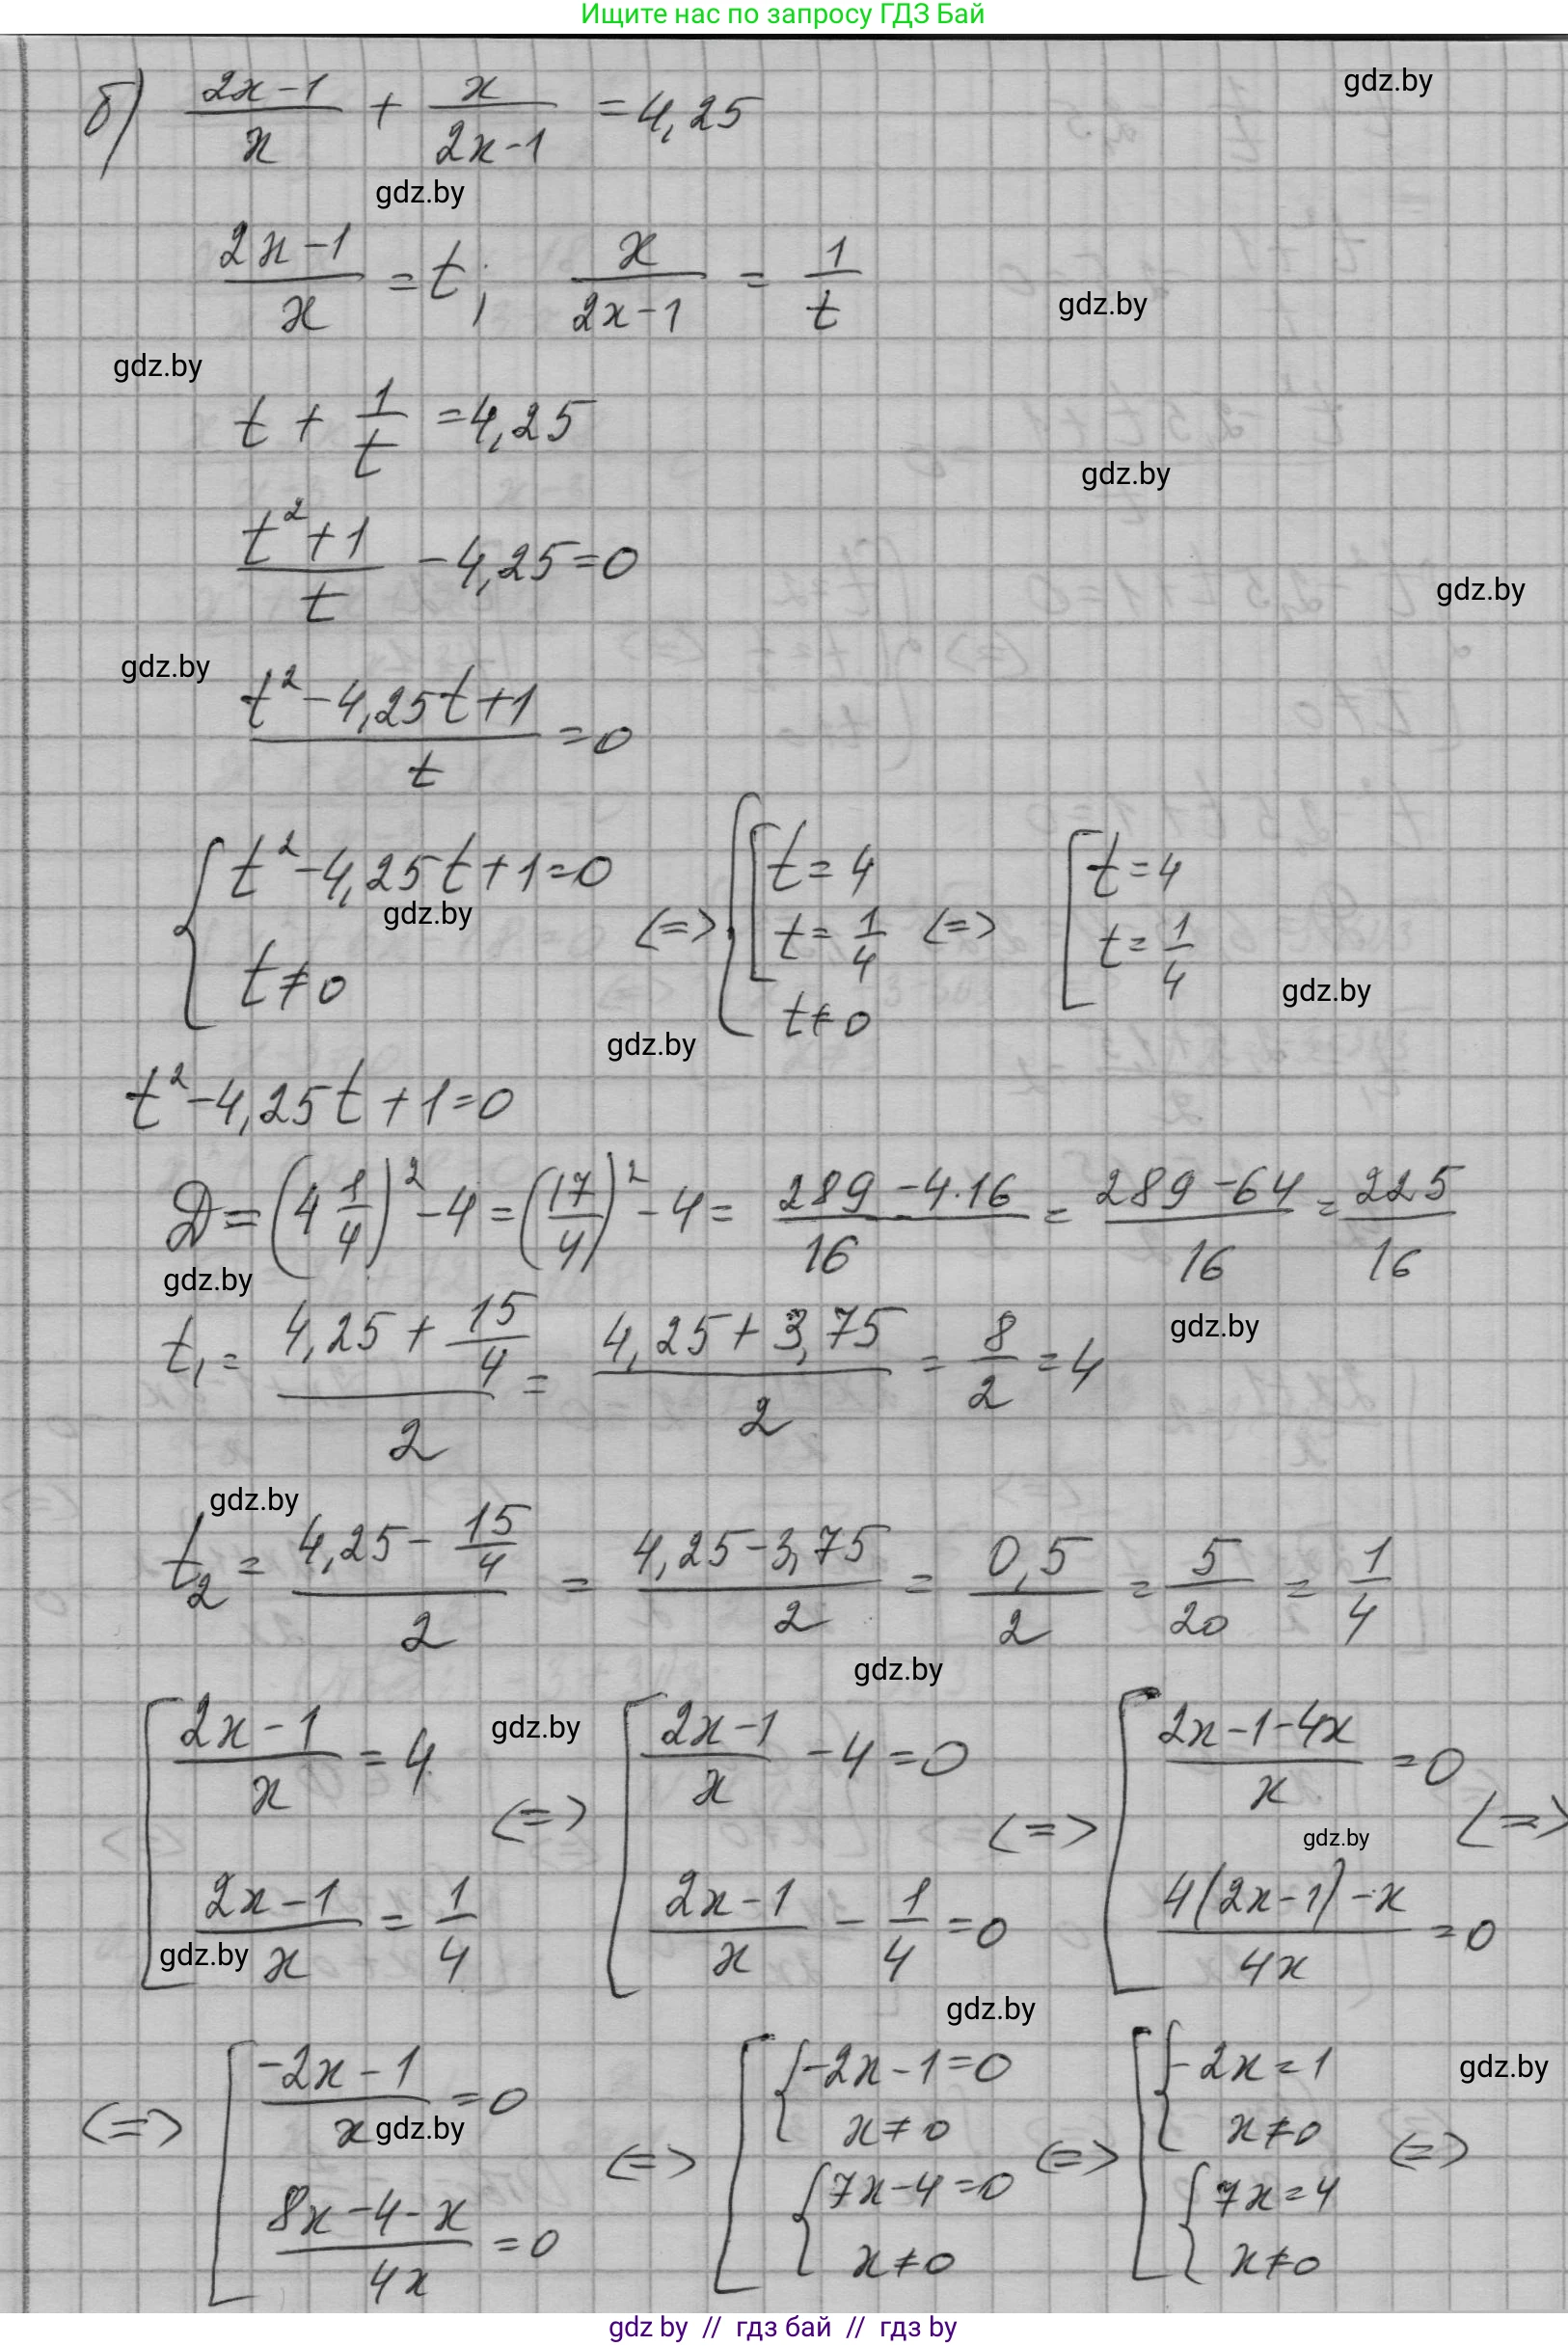 Ищите нас по запросу ГДЗ Бай
gdz.by
б) (2x-1)/x + x/(2x-1) = 4,25
gdz.by
(2x-1)/x = t; x/(2x-1) = 1/t
gdz.by
gdz.by
t + 1/t = 4,25
gdz.by
(t²+1)/t - 4,25 = 0
gdz.by
gdz.by
(t²-4,25t+1)/t = 0
{ t²-4,25t+1=0 ; t≠0 <=> { [ t=4 ; t=1/4 ; t≠0 <=> [ t=4 ; t=1/4
gdz.by
gdz.by
gdz.by
t²-4,25t+1=0
D = (4 1/4)² - 4 = (17/4)² - 4 = (289-4·16)/16 = (289-64)/16 = 225/16
gdz.by
gdz.by
t₁ = (4,25 + 15/4)/2 = (4,25+3,75)/2 = 8/2 = 4
gdz.by
t₂ = (4,25 - 15/4)/2 = (4,25-3,75)/2 = 0,5/2 = 5/20 = 1/4
gdz.by
gdz.by
[ (2x-1)/x = 4 ; (2x-1)/x = 1/4 <=> [ (2x-1)/x - 4 = 0 ; (2x-1)/x - 1/4 = 0 <=> [ (2x-1-4x)/x = 0 ; (4(2x-1)-x)/4x = 0 <=>
gdz.by
gdz.by
gdz.by
gdz.by
<=> [ (-2x-1)/x = 0 ; (8x-4-x)/4x = 0 <=> [ { -2x-1=0 ; x≠0 ; { 7x-4=0 ; x≠0 <=> [ { -2x=1 ; x≠0 ; { 7x=4 ; x≠0 <=>
gdz.by
gdz.by // гдз бай // гдз by